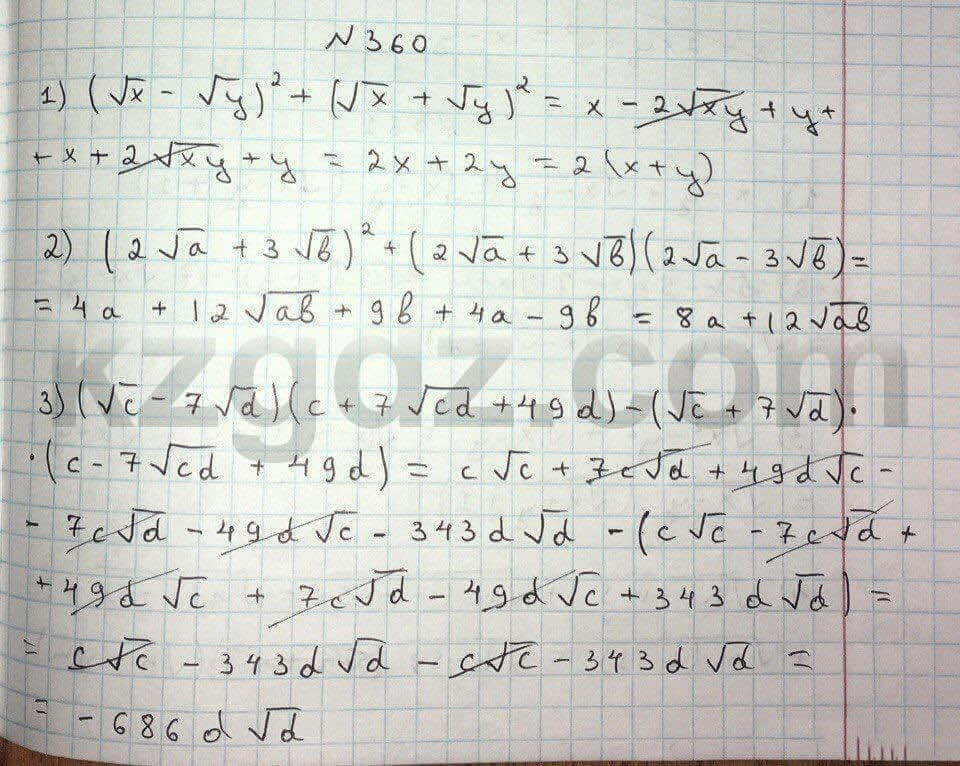 №360
1) (√x - √y)² + (√x + √y)² = x - 2√xy + y +
+ x + 2√xy + y = 2x + 2y = 2(x + y)
2) (2√a + 3√b)² + (2√a + 3√b)(2√a - 3√b) =
= 4a + 12√ab + 9b + 4a - 9b = 8a + 12√ab
kzgdz.com
3) (√c - 7√d)(c + 7√cd + 49d) - (√c + 7√d)·
·(c - 7√cd + 49d) = c√c + 7c√d + 49d√c -
- 7c√d - 49d√c - 343d√d - (c√c - 7c√d +
+ 49d√c + 7c√d - 49d√c + 343d√d) =
= c√c - 343d√d - c√c - 343d√d =
= - 686d√d